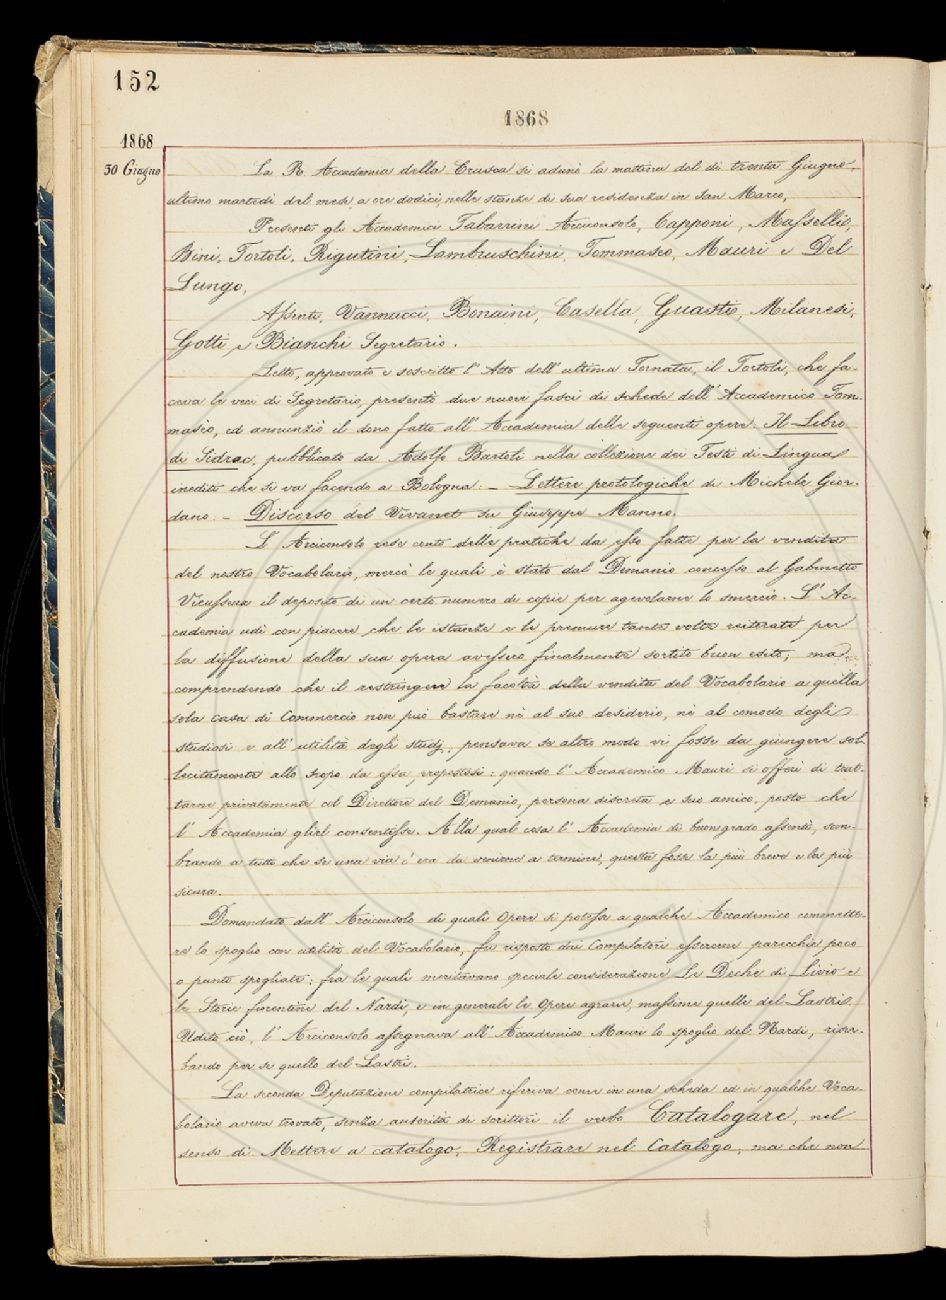 152
1868
1868
30 Giugno
La R. Accademia della Crusca si adunò la mattina del dì trenta Giugno,
ultimo martedì del mese, a ore dodici, nelle stanze di sua residenza in San Marco,
Presenti gli Accademici Tabarrini Arciconsolo, Capponi, Masselli,
Bini, Tortoli, Rigutini, Lambruschini, Tommaseo, Mauri e Del
Lungo,
Assenti, Vannucci, Bonaini, Casella, Guasti, Milanesi,
Gotti, e Bianchi Segretario.
Letto, approvato e soscritto l'Atto dell'ultima Tornata, il Tortoli, che fa-
ceva le veci di Segretario, presentò due nuovi fasci di schede dell'Accademico Tom-
maseo, ed annunziò il dono fatto all'Accademia delle seguenti opere. Il Libro
di Sidrac, pubblicato da Adolfo Bartoli nella collezione dei Testi di Lingua
inediti che si va facendo a Bologna: - Lettere protologiche di Michele Gior-
dano: - Discorso del Vivanet su Giuseppe Manno.
L'Arciconsolo rese conto delle pratiche da esso fatte per la vendita
del nostro Vocabolario, mercè le quali è stato dal Demanio concesso al Gabinetto
Vieusseux il deposito di un certo numero di copie per agevolarne lo smercio. L'Ac-
cademia udì con piacere, che le istanze e le premure tante volte reiterate per
la diffusione della sua opera avessero finalmente sortito buon esito; ma
comprendendo che il restringere la facoltà della vendita del Vocabolario a quella
sola casa di Commercio non può bastare nè al suo desiderio, nè al comodo degli
studiosi e all'utilità degli studj, pensava se altro modo vi fosse da giungere sol-
lecitamente allo scopo da essa propostosi: quando l'Accademico Mauri si offerì di trat-
tarne privatamente col Direttore del Demanio, persona discreta e suo amico, posto che
l'Accademia gliel consentisse. Alla qual cosa l'Accademia di buon grado assentì, sem-
brando a tutti che se una via c'era da venirne a termine, questa fosse la più breve e la più
sicura.
Domandato dall'Arciconsolo di quali Opere si potesse a qualche Accademico commette-
re lo spoglio con utilità del Vocabolario, fu risposto dai Compilatori essercene parecchie poco
o punto spogliate; fra le quali meritavano speciale considerazione Le Deche di Livio e
le Storie fiorentine del Nardi, e in generale le Opere agrarie, massime quelle del Lastri.
Udito ciò, l'Arciconsolo assegnava all'Accademico Mauri lo spoglio del Nardi, riser-
bando per se quello del Lastri.
La seconda Deputazione compilatrice riferiva come in una scheda ed in qualche Voca-
bolario aveva trovato, senza autorità di scrittori il verbo Catalogare, nel
senso di Mettere a catalogo, Registrare nel Catalogo, ma che non